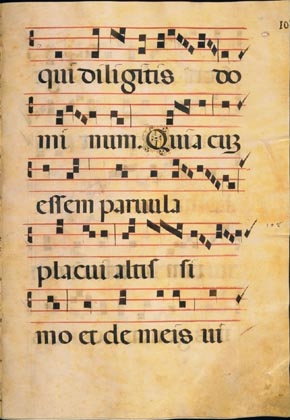 10
qui diligitis do
mi num. Quia cuz
essem paruula
placui altis si
mo et de meis ui